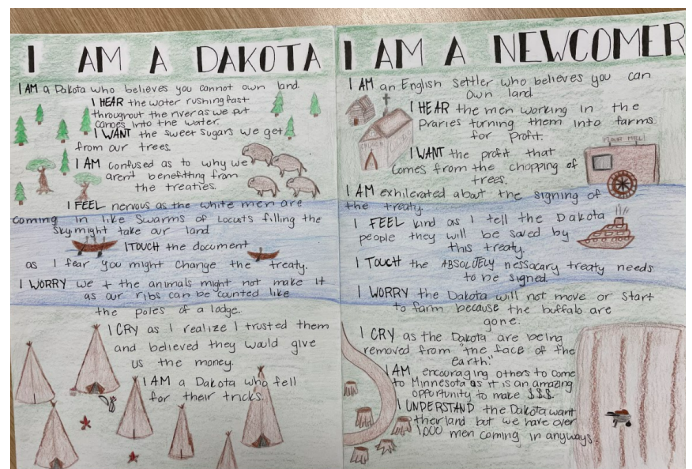 I AM A DAKOTA
I AM a Dakota who believes you cannot own land.
I HEAR the water rushing fast
throughout the river as we put
canoes into the water.
I WANT the sweet sugars we get
from our trees.
I AM confused as to why we
aren't benefitting from
the treaties.
I FEEL nervous as the white men are
coming in like swarms of locusts filling the
sky might take our land
I TOUCH the document
as I fear you might change the treaty.
I WORRY we + the animals might not make it
as our ribs can be counted like
the poles of a lodge.
I CRY as I realize I trusted them
and believed they would give
us the money.
I AM a Dakota who fell
for their tricks.
I AM A NEWCOMER
I AM an English settler who believes you can
own land.
I HEAR the men working in the
praries turning them into farms
for profit.
CHURCH
I WANT the profit that
comes from the chopping of
trees.
FLOUR MILL
I AM exhilerated about the signing of
the treaty.
I FEEL kind as I tell the Dakota
people they will be saved by
this treaty.
I TOUCH the ABSOLUTELY nessacary treaty needs
to be signed.
I WORRY the Dakota will not move or start
to farm because the buffalo are
gone.
I CRY as the Dakota are being
removed from "the face of the
earth."
I AM encouraging others to come
to Minnesota as it is an amazing
opportunity to make $$$.
I UNDERSTAND the Dakota want
their land but we have over
1000 men coming in anyways.